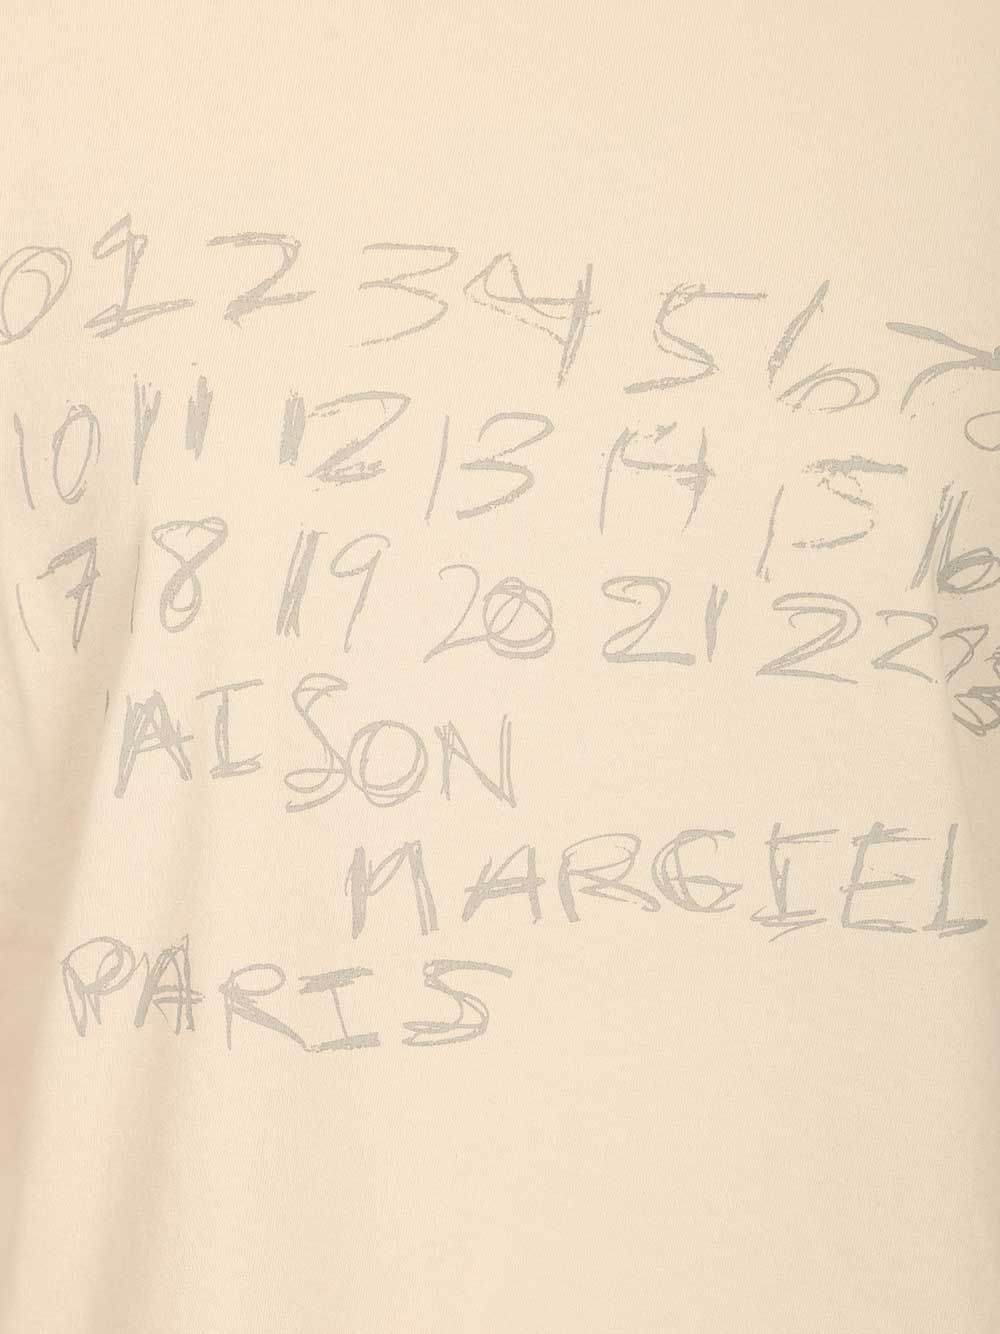 0 1 2 3 4 5 6 7
10 11 12 13 14 15 16
17 18 19 20 21 22 23
AISON
MARGIEL
PARIS